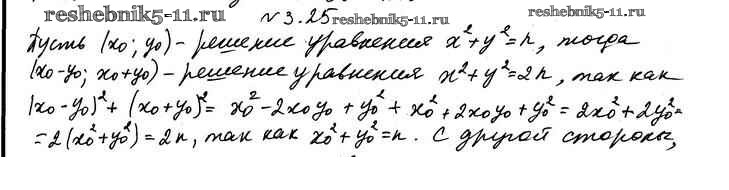 reshebnik5-11.ru №3.25 reshebnik5-11.ru reshebnik5-11.ru
Пусть (x₀; y₀) - решение уравнения x²+y²=n, тогда
(x₀-y₀; x₀+y₀) - решение уравнения x²+y²=2n, так как
(x₀-y₀)²+(x₀+y₀)²= x₀²-2x₀y₀+y₀²+x₀²+2x₀y₀+y₀²=2x₀²+2y₀²=
=2(x₀²+y₀²)=2n, так как x₀²+y₀²=n. С другой стороны,